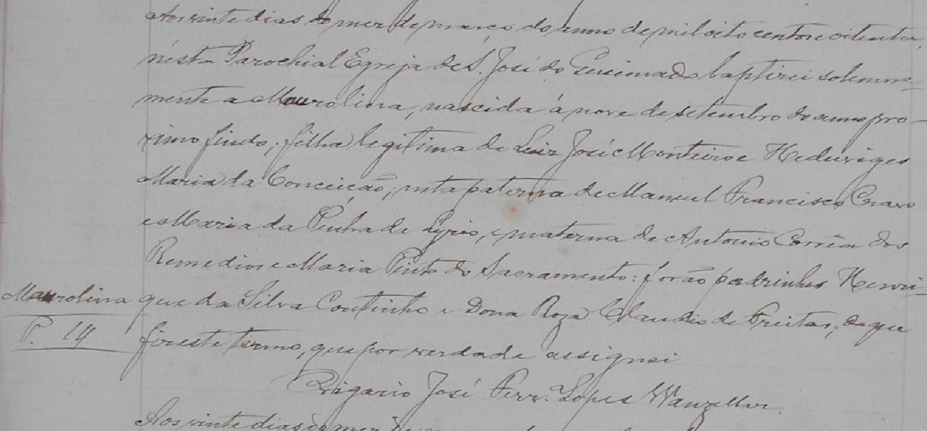 Aos vinte dias do mez de março do anno de mil oito centos e oitenta,
nésta Parochial Egreja de S. José do Queimado baptizei solemne=
mente a Maurolina, nascida á nove de setembro do anno pro-
ximo findo, filha legitima de Luiz José Monteiro e Heduviges
Maria da Conceição; neta paterna de Manoel Francisco
e Maria da Penha de Lyrio, e materna de Antonio Corrêa dos
Remedios e Maria Pinto do Sacramento: forão padrinhos Henri=
Maurolina
P. 14
que da Silva Coutinho e Dona Roza Claudio de Freitas; do que
fiz este termo, que por verdade assignei
Vigario José Ferr. Lopes Wanzeller.
Aos vinte dias do mez de